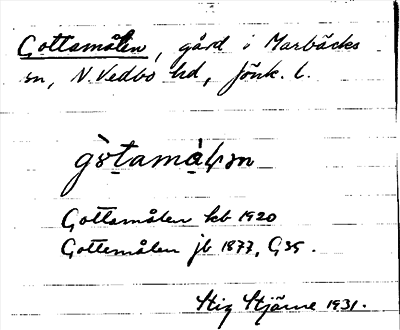 Gottamålen, gård i Marbäcks
sn, N. Vedbo hd, Jönk. l.
Gottamålen kb 1920
Gottemålen jb 1877, G35.
Stig Stjärne 1931.